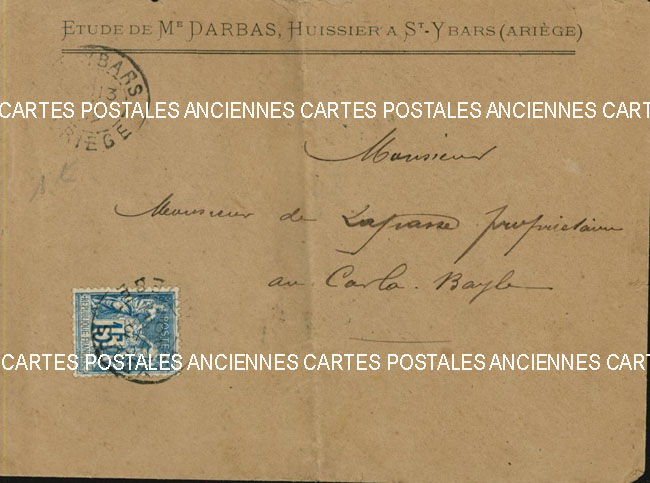 ETUDE DE ME DARBAS, HUISSIER A ST-YBARS (ARIÈGE)
YBARS
13
ARIEGE
CARTES POSTALES ANCIENNES CARTES POSTALES ANCIENNES CART
Monsieur
Monsieur de Laprasse propriétaire
au Carla-Bayle
15
CARTES POSTALES ANCIENNES CARTES POSTALES ANCIENNES CART